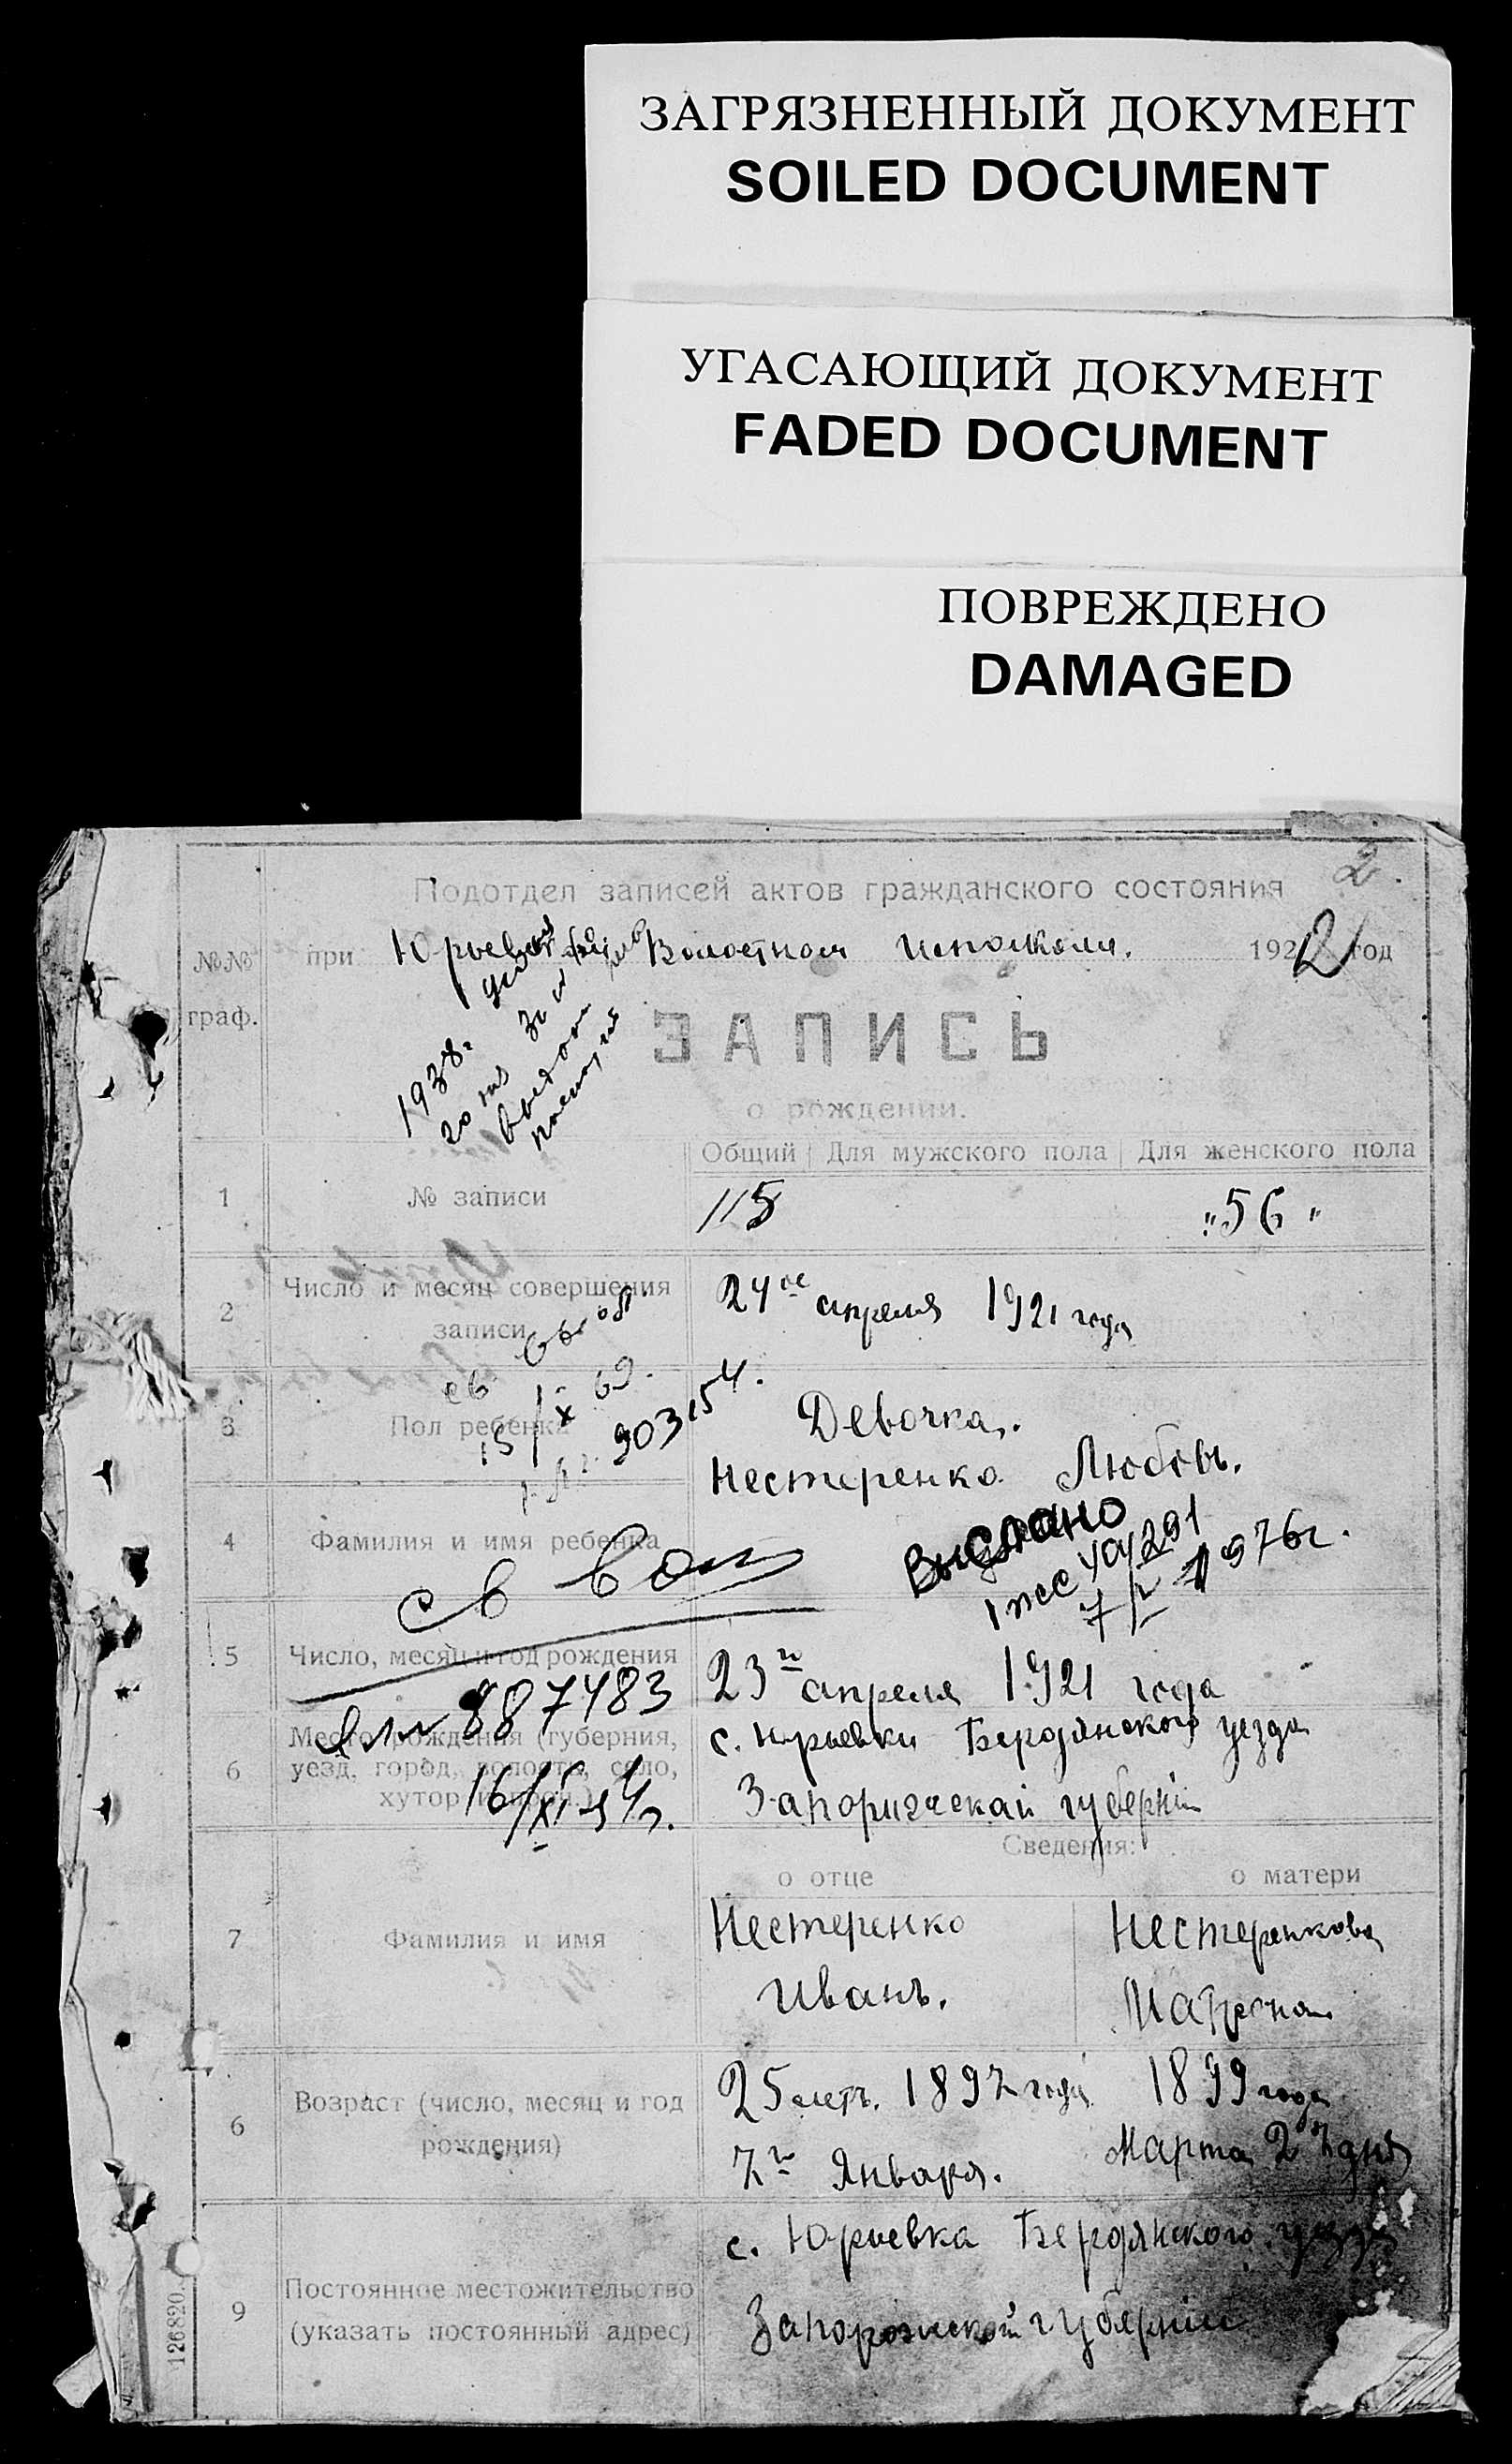 ЗАГРЯЗНЕННЫЙ ДОКУМЕНТ
SOILED DOCUMENT
УГАСАЮЩИЙ ДОКУМЕНТ
FADED DOCUMENT
ПОВРЕЖДЕНО
DAMAGED
2.
Подотдел записей актов гражданского состояния
№№ граф.
при Волостном Исполкоме. 1922 год
1938.
ЗАПИСЬ
о рождении.
Общий Для мужского пола Для женского пола
1 № записи 115 „56"
2 Число и месяц совершения записи 24ое апреля 1921 года
3 Пол ребенка Девочка.
90315
Нестеренко Любовь.
4 Фамилия и имя ребенка
св
1976г.
5 Число, месяц и год рождения 23го апреля 1921 года
887483
6 Место рождения (губерния, уезд, город, волость, село, хутор с. Юрьевки Бердянского уезда
губерніи
16/XI-54г.
Сведения:
о отце о матери
7 Фамилия и имя Нестеренко Нестеренкова
Иванъ. Матрона
6 Возраст (число, месяц и год рождения) 25 летъ. 1897 года 1899 года
7го Января. Марта 27 дня
9 Постоянное местожительство (указать постоянный адрес) с. Юрьевка Бердянского уезда
Запорожской губерніи
126820.